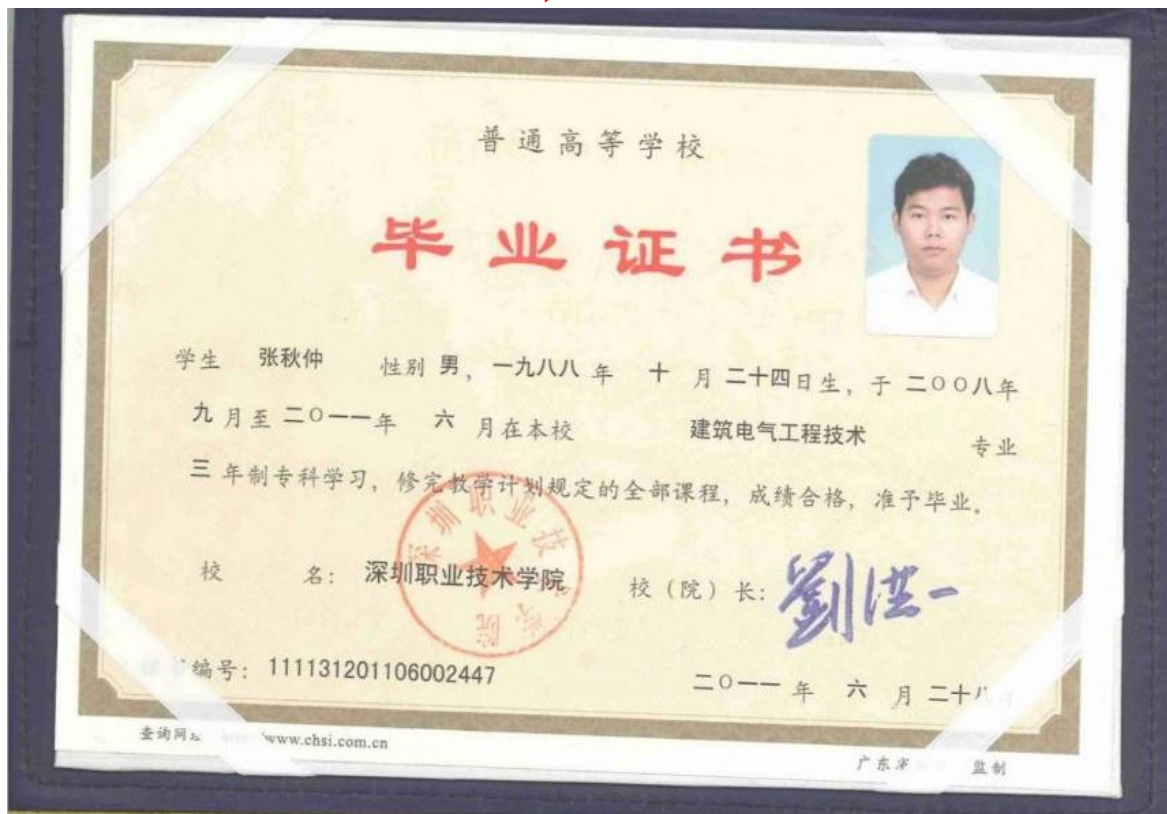 普通高等学校
毕业证书
学生 张秋仲 性别 男，一九八八年 十 月 二十四日生，于 二〇〇八年
九 月至 二〇一一年 六 月在本校 建筑电气工程技术 专业
三 年制专科学习，修完教学计划规定的全部课程，成绩合格，准予毕业。
深圳职业技术学院
校 名：深圳职业技术学院 校（院）长：劉洪一
编号：111131201106002447
二〇一一 年 六 月 二十八
查询网 www.chsi.com.cn
广东 监制